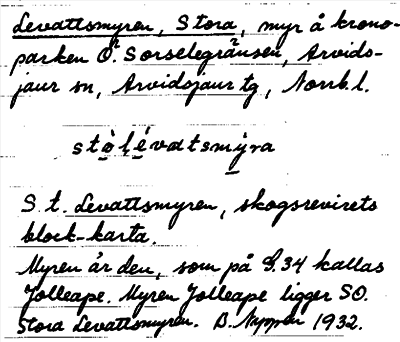 Levattsmyren, Stora, myr å krono-
parken Ö. Sorselegränsen, Arvids-
jaur sn, Arvidsjaur tg, Norrb. l.
stòlévatsmýra
St. Levattsmyren, skogsrevirets
block-karta.
Myren är den, som på S. 34 kallas
Jolleape. Myren Jolleape ligger SO.
Stora Levattsmyren. B. 1932.